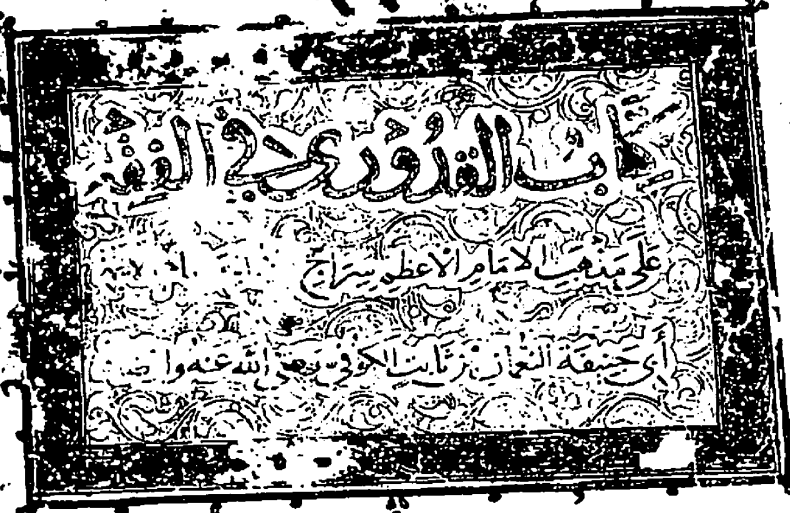 كتاب القدوري في الفقه
على مذهب الامام الاعظم سراج
أبي حنيفة النعمان بن ثابت الكوفي رضي الله عنه